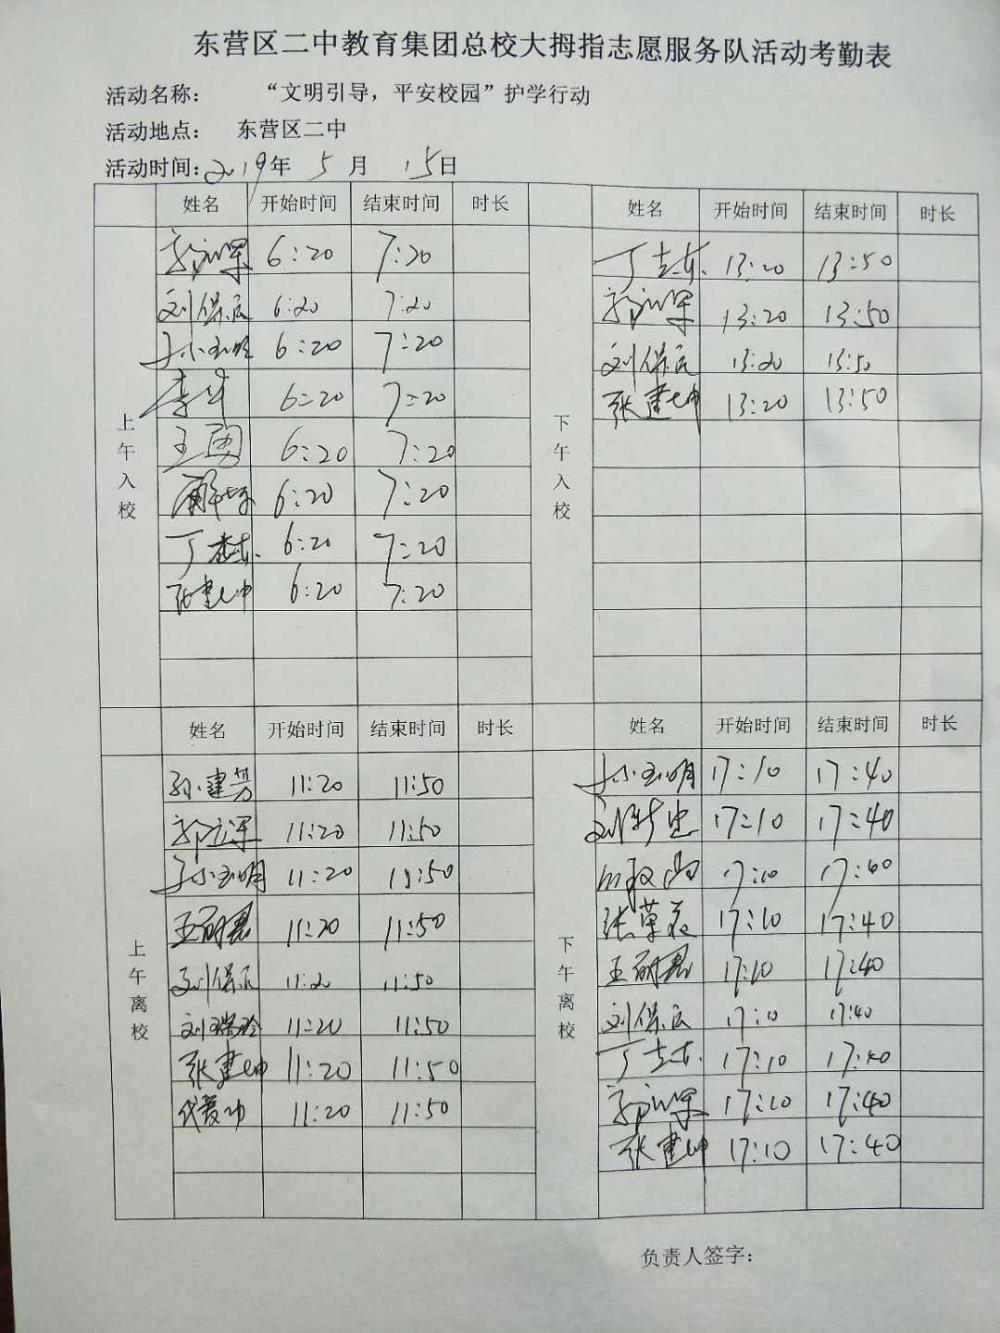 东营区二中教育集团总校大拇指志愿服务队活动考勤表
活动名称： “文明引导，平安校园”护学行动
活动地点： 东营区二中
活动时间：2019年 5 月 15日
上午入校
姓名 开始时间 结束时间 时长
6:20 7:20
刘保庆 6:20 7:20
孙玉明 6:20 7:20
6:20 7:20
王勇 6:20 7:20
6:20 7:20
丁 6:20 7:20
张建坤 6:20 7:20
下午入校
姓名 开始时间 结束时间 时长
丁 13:20 13:50
13:20 13:50
刘保庆 13:20 13:50
张建坤 13:20 13:50
上午离校
姓名 开始时间 结束时间 时长
孙建芳 11:20 11:50
11:20 11:50
孙玉明 11:20 11:50
王丽君 11:20 11:50
刘保庆 11:20 11:50
刘瑞玲 11:20 11:50
张建坤 11:20 11:50
11:20 11:50
下午离校
姓名 开始时间 结束时间 时长
孙玉明 17:10 17:40
刘 17:10 17:40
17:10 17:40
张 17:10 17:40
王丽君 17:10 17:40
刘保庆 17:10 17:40
丁 17:10 17:40
17:10 17:40
张建坤 17:10 17:40
负责人签字：